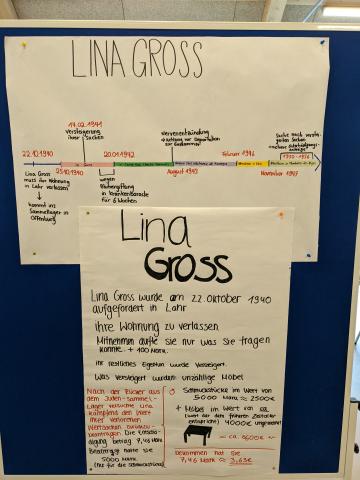 LINA GROSS
14.02.1941
versteigerung
ihrer Sachen
20.01.1942
Nervenentzündung
Februar 1946
Suche nach verstei-
gerten Sachen
1950 - 1956
22.10.1940
25.10.1940
August 1943
November 1947
Lina Gross
muss ihre Wohnung
in Lahr verlassen
kommt ins
Sammellager in
Offenburg
wegen
in Krankenbaracke
für 6 Wochen
Lina
Gross
Lina Gross wurde am 22. Oktober 1940
aufgefordert in Lahr
ihre Wohnung zu verlassen.
Mitnehmen durfte sie nur was sie tragen
konnte. + 100 Mark.
Ihr restliches Eigentum wurde versteigert.
Was versteigert wurden: unzählige Möbel
Nach der Rückkehr aus
dem Juden-Sammel-
Lager versuchte Lina
den Wert
ihrer verlorenen
Wertsachen
beantragen. Die Entschä-
digung betrug 7,46 Mark
Beantragt hatte sie
5000 Mark.
(nur für die Schmuckstücke)
Schmuckstücke im Wert von
5000 Mark ≈ 2500€
+ Möbel im Wert von ca.
4000€ umgerechnet
= ca. 6500€
bekommen hat sie
7,46 Mark ≈ 3,63€